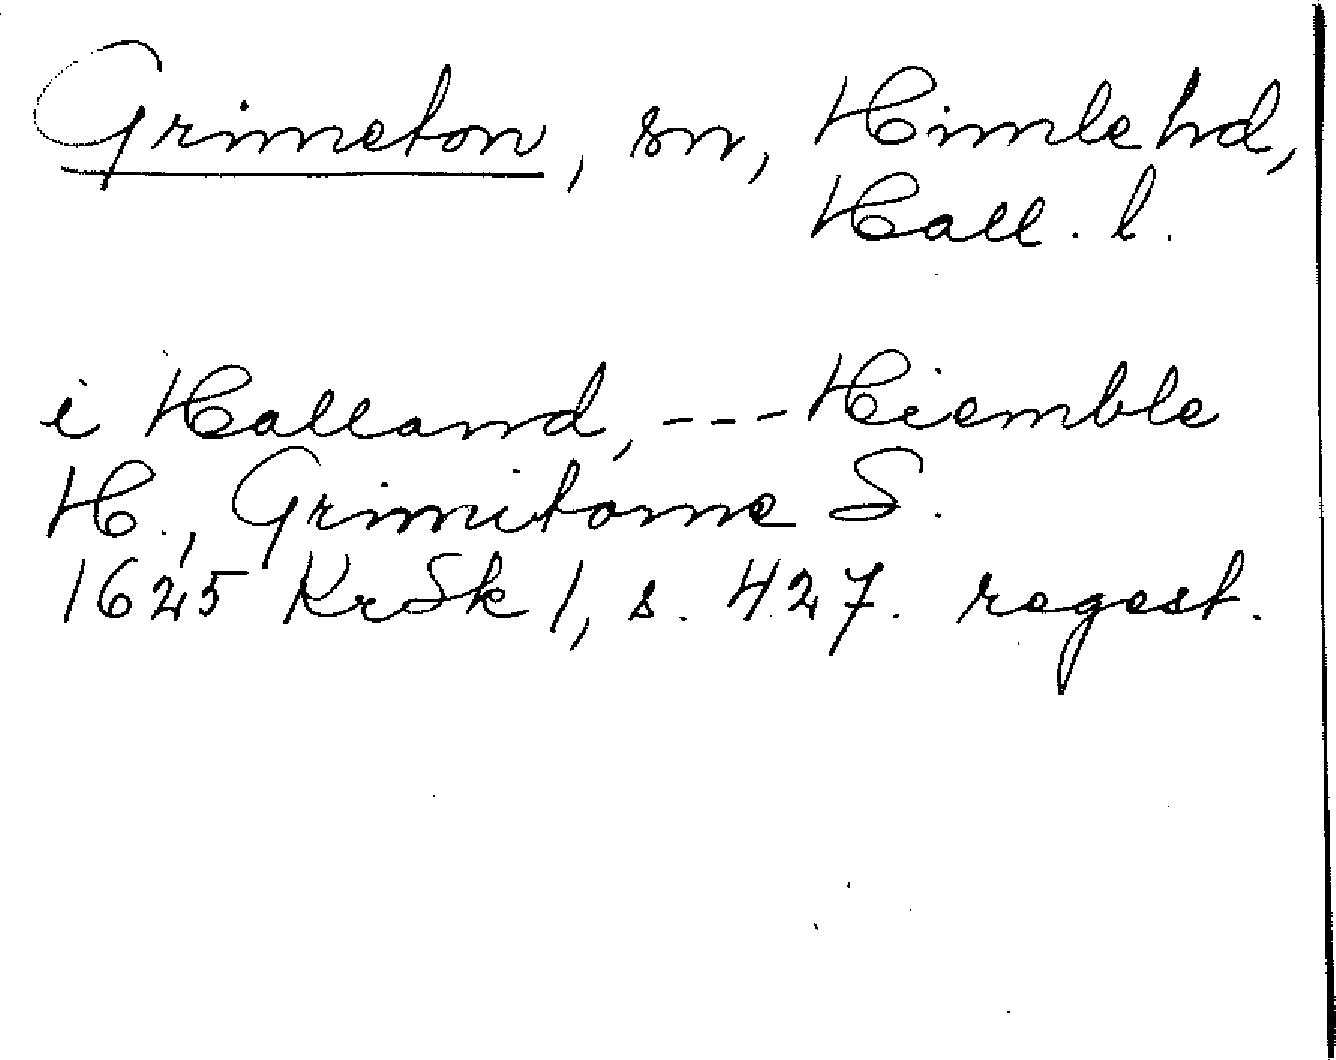 Grimeton, sn, Himle hd,
Hall. l.
i Halland, --- Hiemble
H., Grimitonne S.
1625 KrSk 1, s. 427. regest.